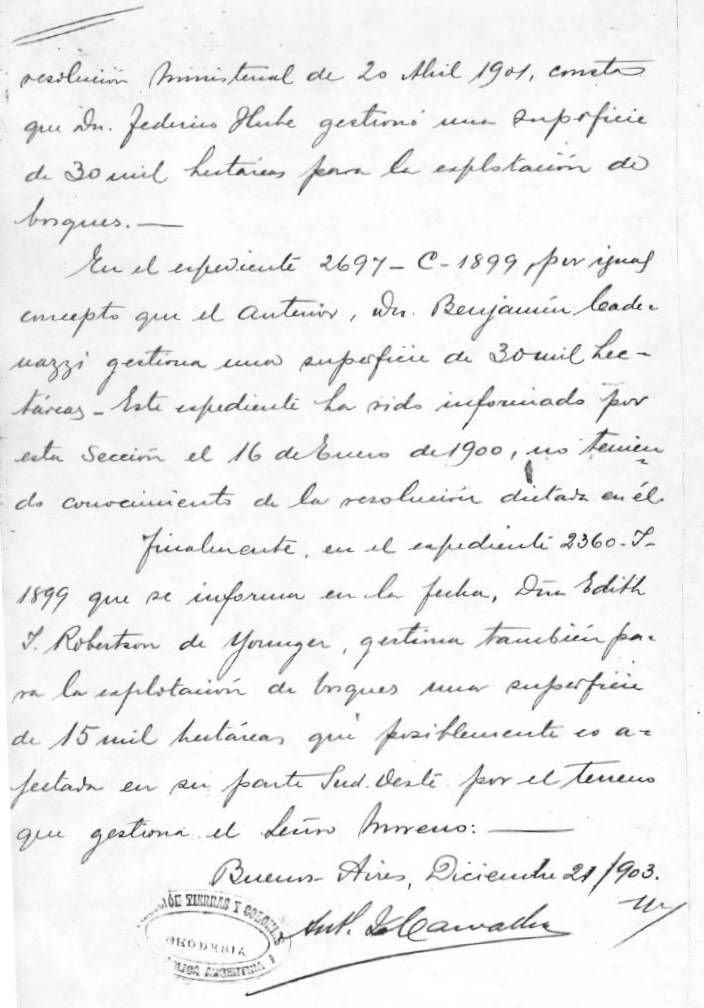 resolución Ministerial de 20 Abril 1901, consta
que Dn. Federico Hube gestionó una superficie
de 30 mil hectáreas para la explotación de
bosques. —
En el expediente 2697 - C - 1899, por igual
concepto que el anterior, Dn. Benjamín Cade-
nazzi gestiona una superficie de 30 mil hec-
táreas - Este expediente ha sido informado por
esta Sección el 16 de Enero de 1900, no tenien-
do conocimiento de la resolución dictada en él.
Finalmente, en el expediente 2360 - T -
1899 que se informa en la fecha, Dña Edith
T. Robertson de Younger, gestiona también pa-
ra la explotación de bosques una superficie
de 15 mil hectáreas que posiblemente es a-
fectada en su parte Sud. Oeste por el terreno
que gestiona el Señor Moreno: —
Buenos Aires, Diciembre 21/903.
Carvalho
TIERRAS Y COLONIAS
GEODESIA
ARGENTINA